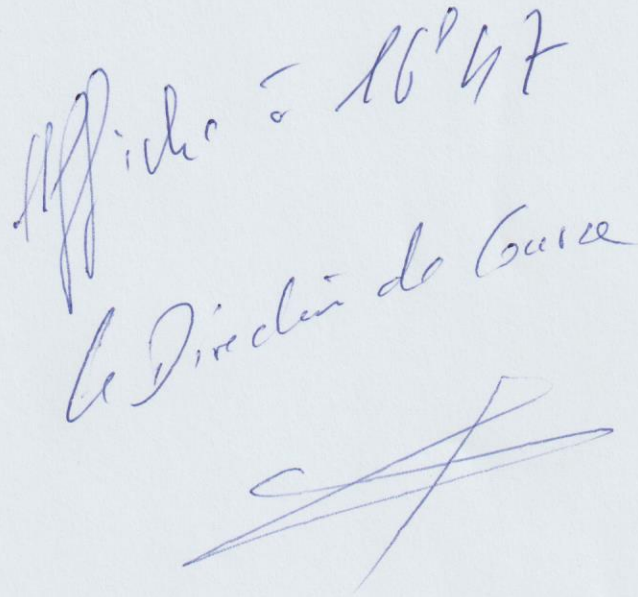 Affiché à 16h47
Le Direction de Course